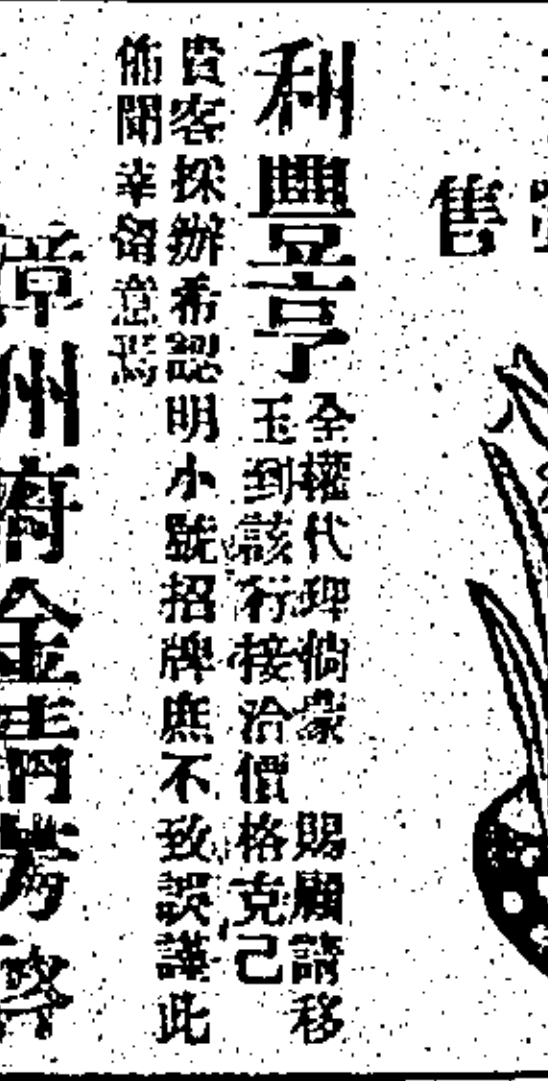 售
利豐亨
全權代理倘蒙 賜顧請移
玉到該行接洽價格克己
貴客採辦希認明小號招牌庶不致誤謹此
佈聞幸留意焉
漳州府金青網芳